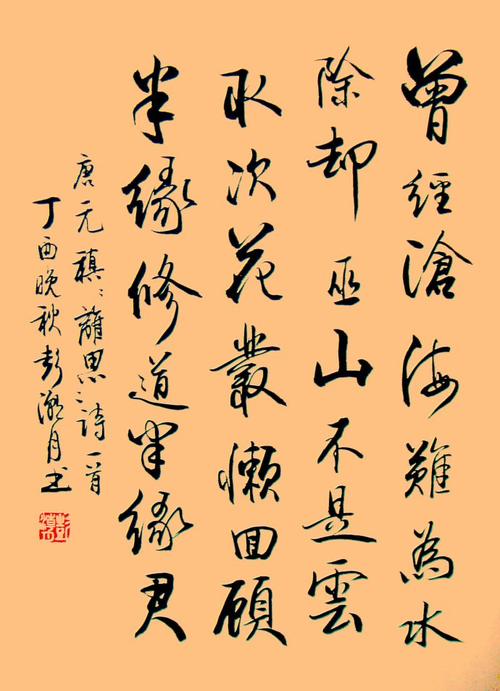 曾經滄海難為水
除却巫山不是雲
取次花叢懶回顧
半緣修道半緣君
唐元稹離思詩一首
丁酉晚秋彭月书